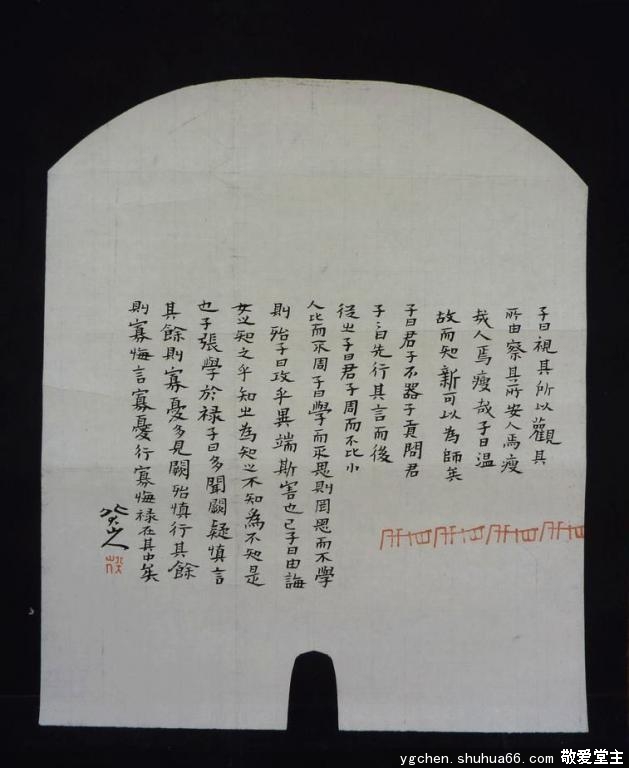 子曰視其所以觀其
所由察其所安人焉瘦
哉人焉瘦哉子曰温
故而知新可以為師矣
子曰君子不器子貢問君
子子曰先行其言而後
從之子曰君子周而不比小
人比而不周子曰學而不思則罔思而不學
則殆子曰攻乎異端斯害也已子曰由誨
女知之乎知之為知之不知為不知是
也子張學於禄子曰多聞闕疑慎言
其餘則寡憂多見闕殆慎行其餘
則寡悔言寡憂行寡悔禄在其中矣
八大山人
ygchen.shuhua66.com 敬爱堂主